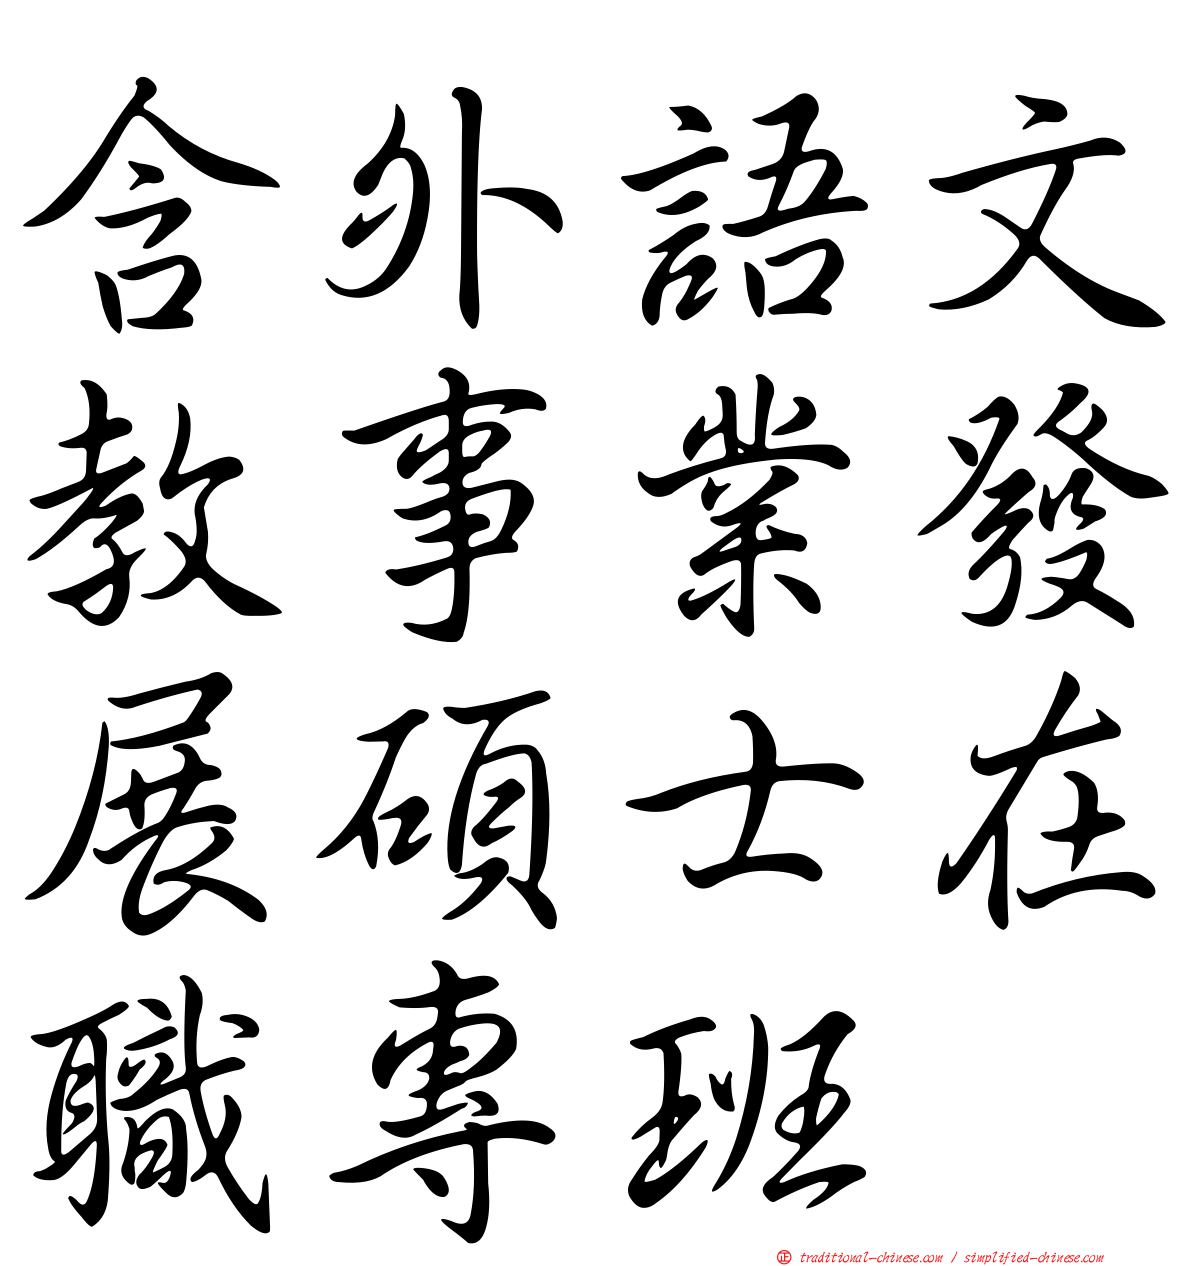 含外語文
教事業發
展碩士在
職專班
正 traditional-chinese.com / simplified-chinese.com